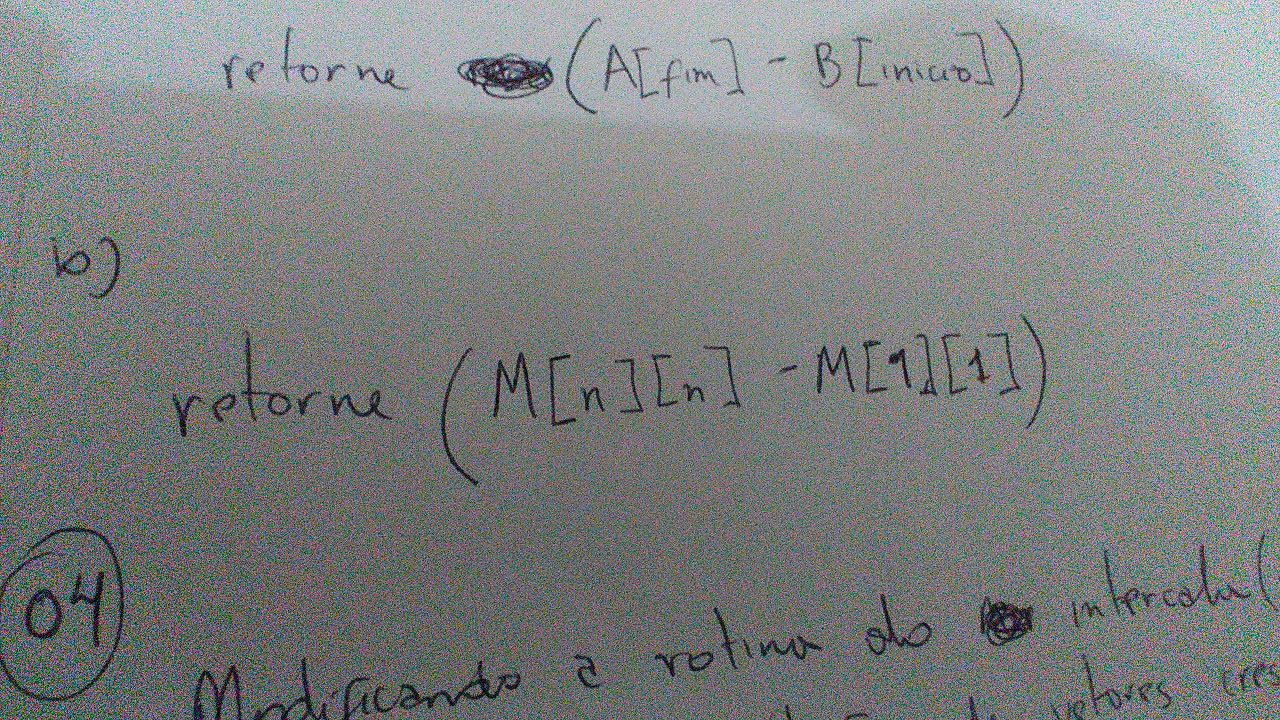 retorne (A[fim] - B[inicio])
b)
retorne (M[n][n] - M[1][1])
04
Modificando a rotina do intercala(
de vetores cres